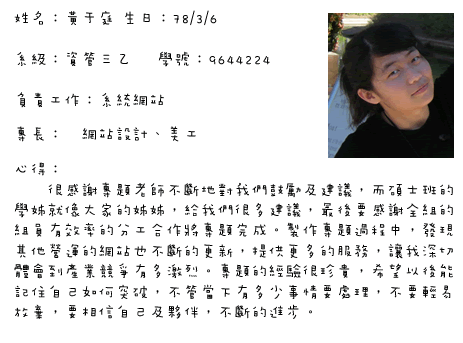 姓名：黃于庭 生日：78/3/6
系級：資管三乙　學號：9644224
負責工作：系統網站
專長：　網站設計、美工
心得：
很感謝專題老師不斷地對我們鼓勵及建議，而碩士班的
學姊就像大家的姊姊，給我們很多建議，最後要感謝全組的
組員有效率的分工合作將專題完成。製作專題過程中，發現
其他營運的網站也不斷的更新，提供更多的服務，讓我深切
體會到產業競爭有多激烈。專題的經驗很珍貴，希望以後能
記住自己如何突破，不管當下有多少事情要處理，不要輕易
放棄，要相信自己及夥伴，不斷的進步。